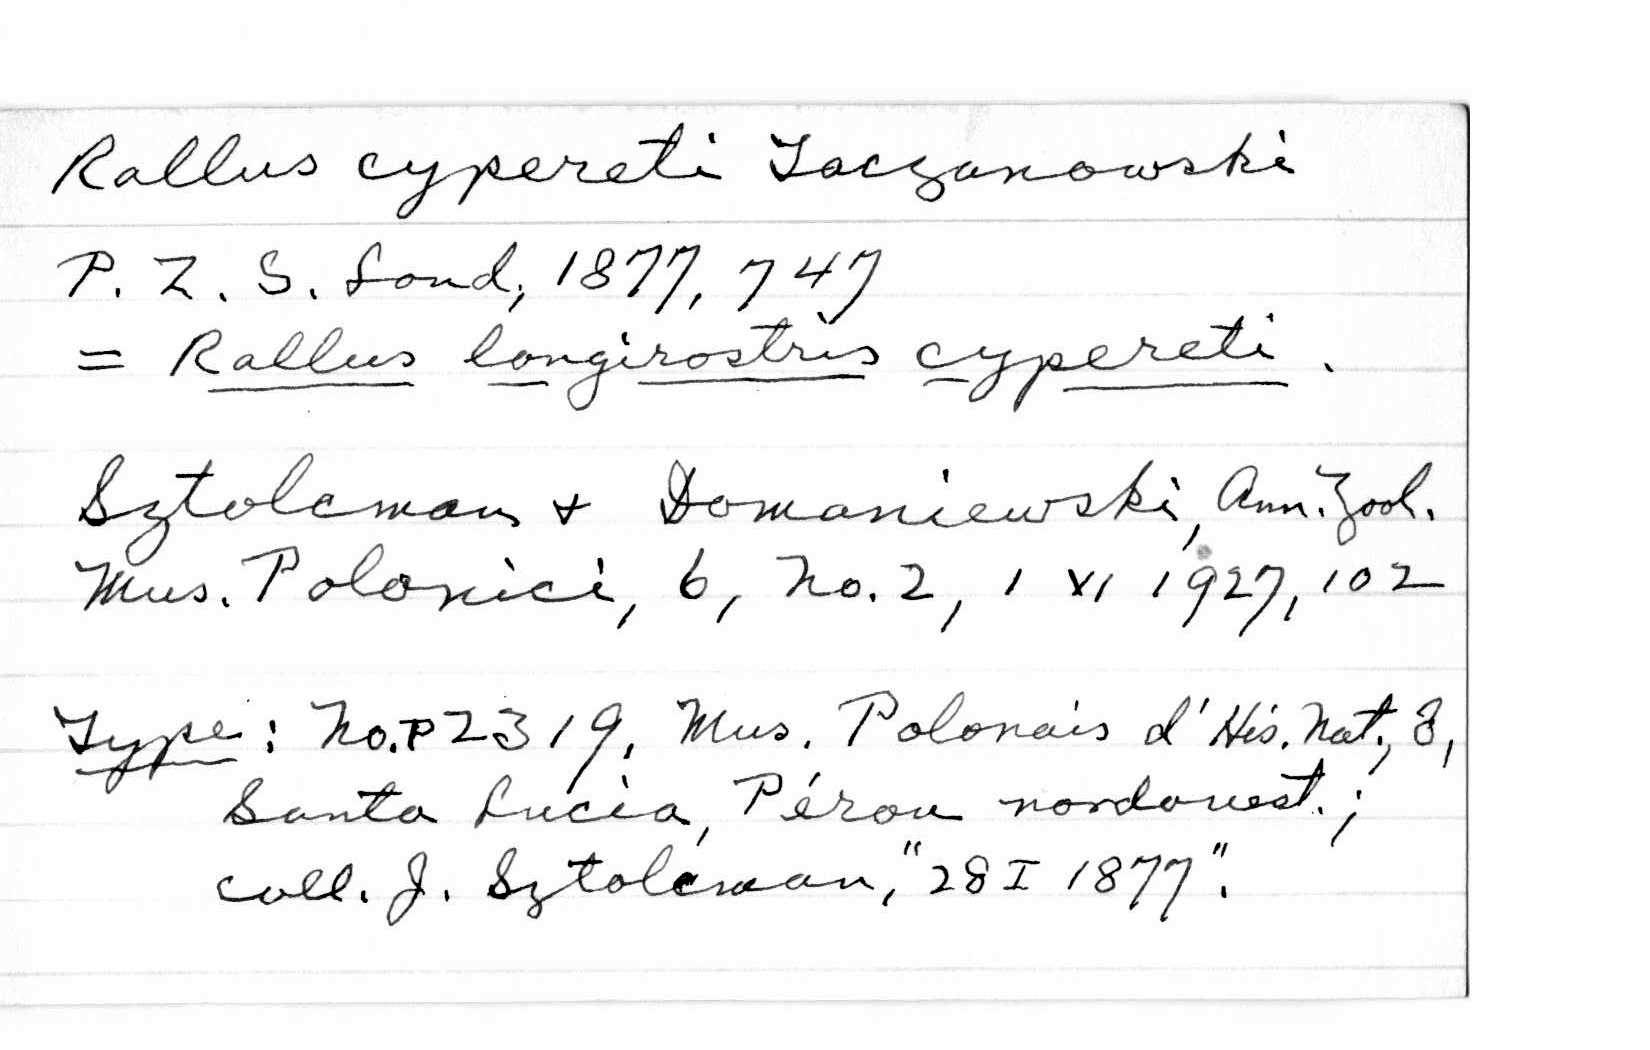 Rallus cypereti Taczanowski
P. Z. S. Lond., 1877, 747
= Rallus longirostris cypereti.
Sztolcman + Domaniewski, Ann. Zool.
Mus. Polonici, 6, No. 2, 1 XI 1927, 102
Type: No. P2319, Mus. Polonais d'His. Nat.,
Santa Lucia, Pérou nordouest.;
coll. J. Sztolcman, "28 I 1877".